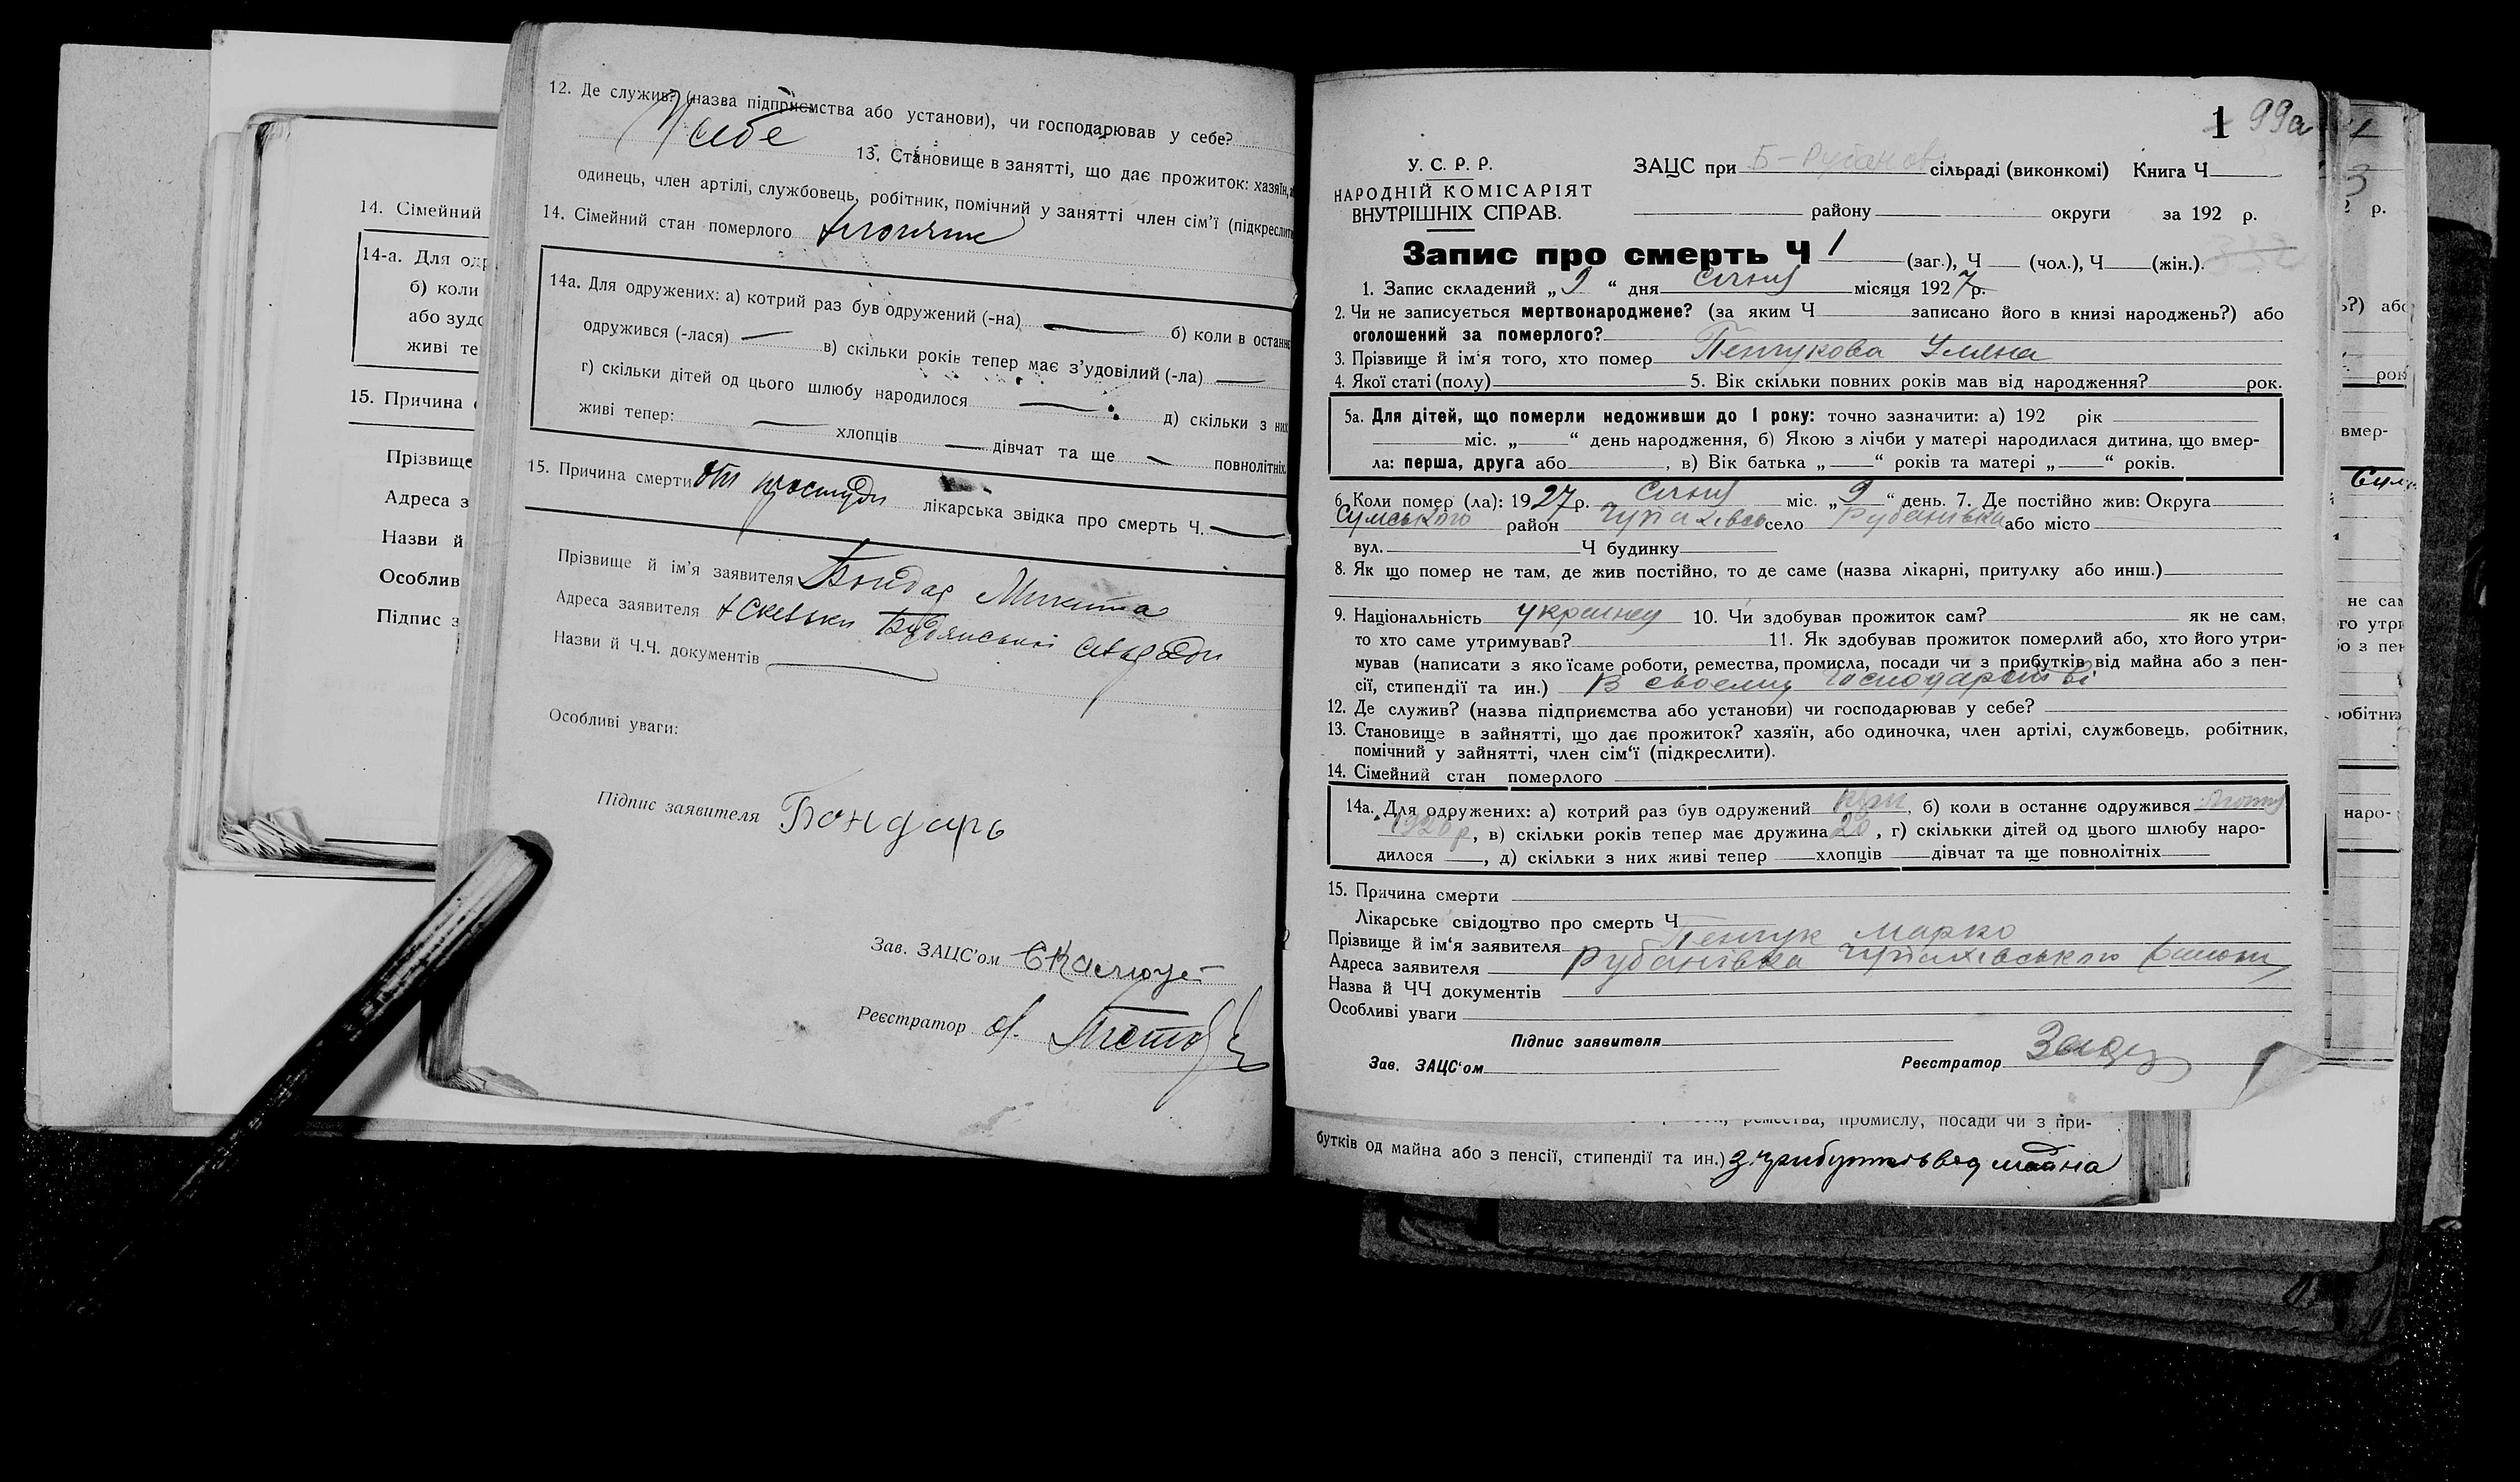 14. Сімейний
14-а. Для
б) коли
або
живі те
15. Причина
Прізвище
Адреса з
Назви й
Особлив
Підпис з
12. Де служив? (назва підприємства або установи), чи господарював у себе?
У себе
13. Становище в занятті, що дає прожиток: хазяїн,
одинець, член артілі, службовець, робітник, помічний у занятті член сім'ї (підкреслити
14. Сімейний стан померлого хлопчик
14а. Для одружених: а) котрий раз був одружений (-на) — б) коли в останнє
одружився (-лася) — в) скільки років тепер має з'удовілий (-ла) —
г) скільки дітей од цього шлюбу народилося — д) скільки з них
живі тепер: — хлопців — дівчат та ще — повнолітніх.
15. Причина смерти от простуди лікарська звідка про смерть Ч. —
Прізвище й ім'я заявителя Бондар Микита
Адреса заявителя
Назви й Ч.Ч. документів —
Особливі уваги:
Підпис заявителя Бондарь
Зав. ЗАЦС'ом
Реєстратор
1 99а
У. С. Р. Р.
НАРОДНІЙ КОМІСАРІЯТ
ВНУТРІШНІХ СПРАВ.
ЗАЦС при Б-Рубанов сільраді (виконкомі) Книга Ч
району округи за 192 р.
Запис про смерть Ч 1 (заг.), Ч (чол.), Ч (жін.).
1. Запис складений „ 9 “ дня січня місяця 1927 р.
2. Чи не записується мертвонароджене? (за яким Ч записано його в книзі народжень?) або
оголошений за померлого?
3. Прізвище й ім'я того, хто помер Пенчукова Уляна
4. Якої статі (полу) 5. Вік скільки повних років мав від народження? рок.
5а. Для дітей, що померли недоживши до 1 року: точно зазначити: а) 192 рік
міс. „ “ день народження, б) Якою з лічби у матері народилася дитина, що вмер-
ла: перша, друга або , в) Вік батька „ “ років та матері „ “ років.
6. Коли помер (ла): 1927 р. січня міс. „ 9 “ день. 7. Де постійно жив: Округа
Сумського район Чупахівсь село Рубанівка або місто
вул. Ч будинку
8. Як що помер не там, де жив постійно, то де саме (назва лікарні, притулку або инш.)
9. Національність українец 10. Чи здобував прожиток сам? як не сам,
то хто саме утримував? 11. Як здобував прожиток померлий або, хто його утри-
мував (написати з якоїсаме роботи, ремества, промисла, посади чи з прибутків від майна або з пен-
сії, стипендії та ин.) В своєму господарстві
12. Де служив? (назва підприємства або установи) чи господарював у себе?
13. Становище в зайнятті, що дає прожиток? хазяїн, або одиночка, член артілі, службовець, робітник,
помічний у зайнятті, член сім'ї (підкреслити).
14. Сімейний стан померлого
14а. Для одружених: а) котрий раз був одружений б) коли в останнє одружився
1926 р, в) скільки років тепер має дружина 20, г) скількки дітей од цього шлюбу наро-
дилося , д) скільки з них живі тепер хлопців дівчат та ще повнолітніх
15. Причина смерти
Лікарське свідоцтво про смерть Ч
Прізвище й ім'я заявителя Пенчук Марко
Адреса заявителя Рубанівка Чупахівського району
Назва й ЧЧ документів
Особливі уваги
Підпис заявителя
Зав. ЗАЦС'ом Реєстратор
ремества, промислу, посади чи з при-
бутків од майна або з пенсії, стипендії та ин.) з прибутків від майна
3
р.
або
рок
вмер-
не сам
го утри
о з пен
робітни
наро-